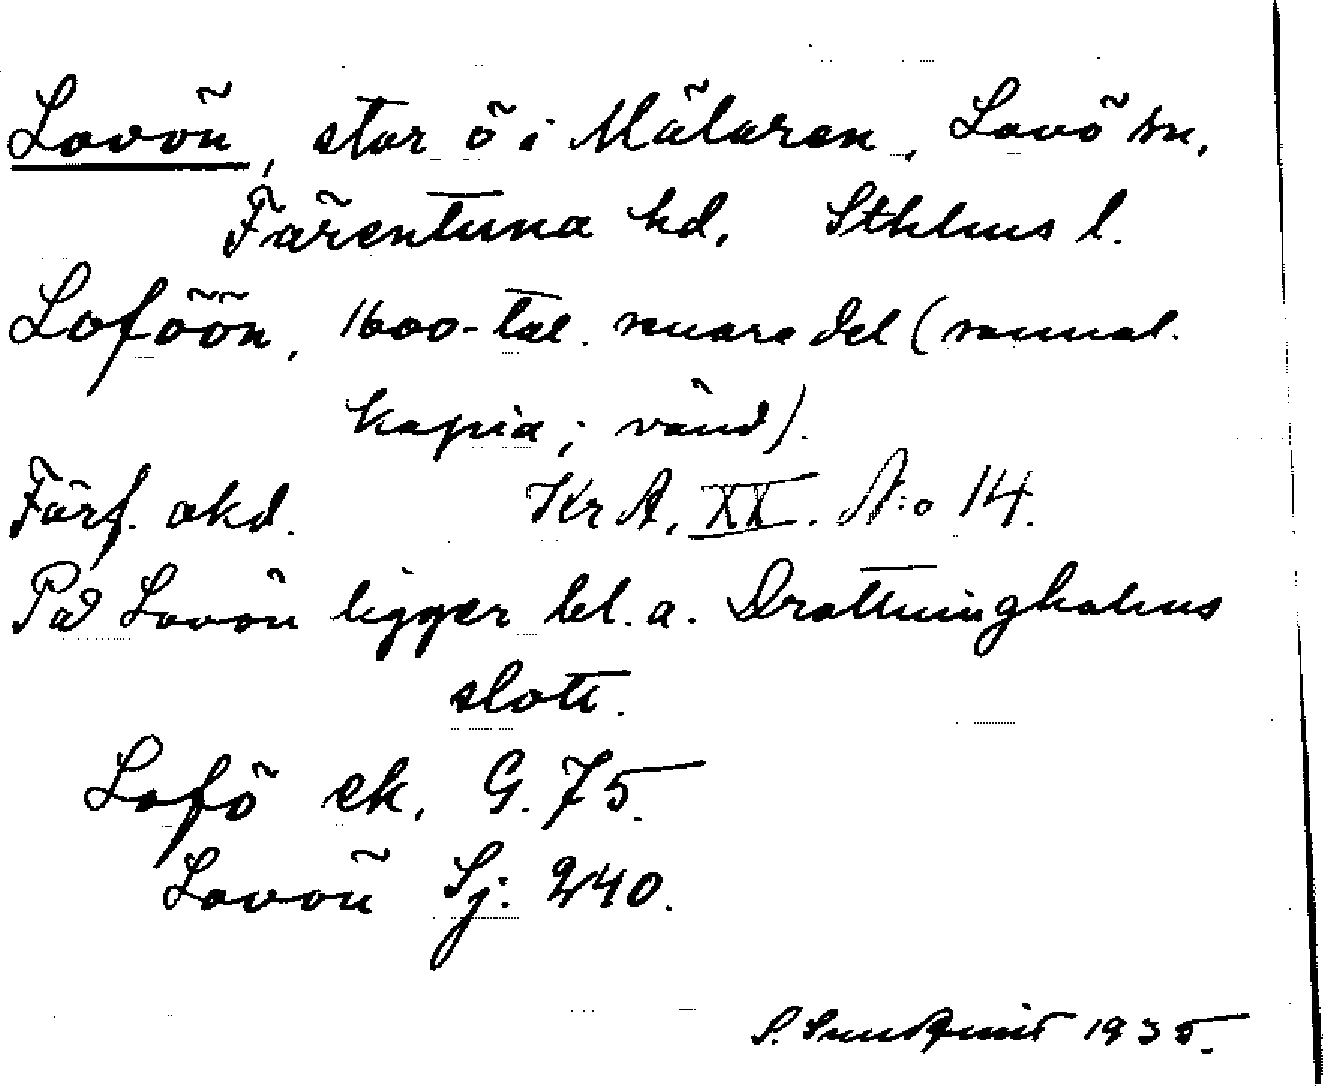 Lovön, stor ö i Mälaren, Lovö sn,
Färentuna hd, Sthlms l.
Loföön, 1600-tal. senare del (samml.
kopia; vänd).
Förf. okd. Kr A, XX. N:o 14.
På Lovön ligger bl. a. Drottningholms
slott.
Lofö ek. G. 75.
Lovön Sj: 240.
S. Sundqvist 1935.